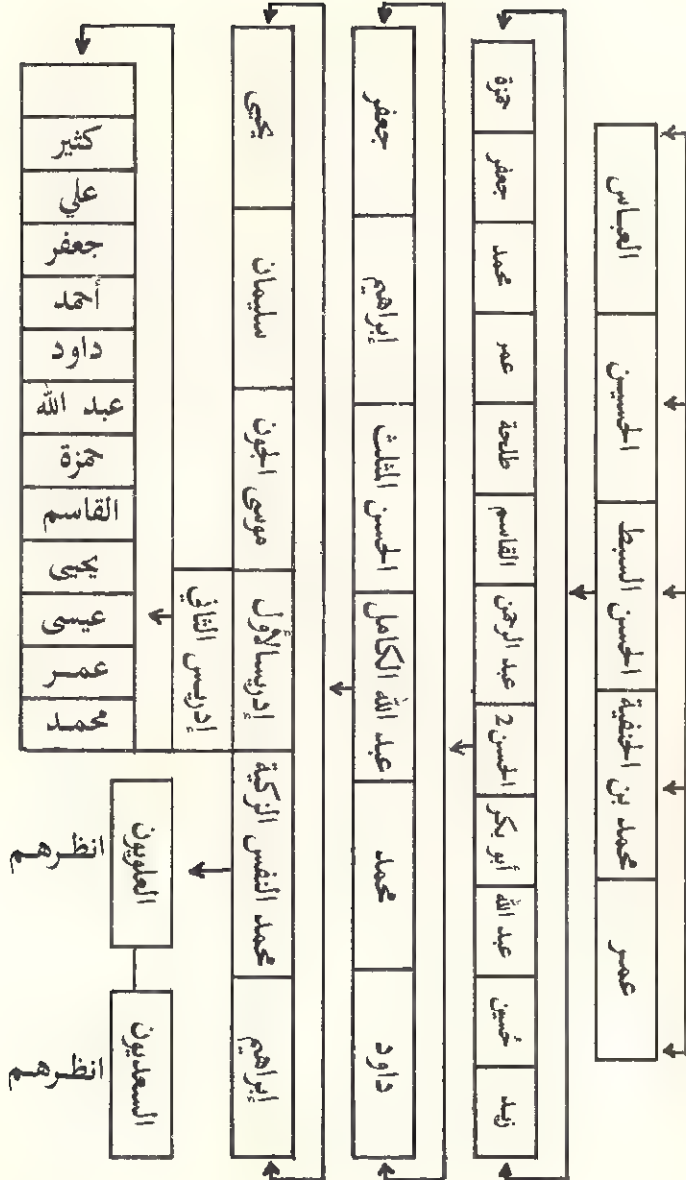 العباس
الحسين
الحسن السبط
محمد بن الحنفية
عمر
حمزة
جعفر
محمد
عمر
طلحة
القاسم
عبد الرحمن
الحسن 2
أبو بكر
عبد الله
حُسين
زيد
جعفر
إبراهيم
الحسن المثلث
عبد الله الكامل
محمد
داود
يحيى
سليمان
موسى الجون
إدريس الأول
محمد النفس الزكية
إبراهيم
إدريس الثاني
كثير
علي
جعفر
أحمد
داود
عبد الله
حمزة
القاسم
يحيى
عيسى
عمر
محمد
العلويون
انظرهم
السعديون
انظرهم